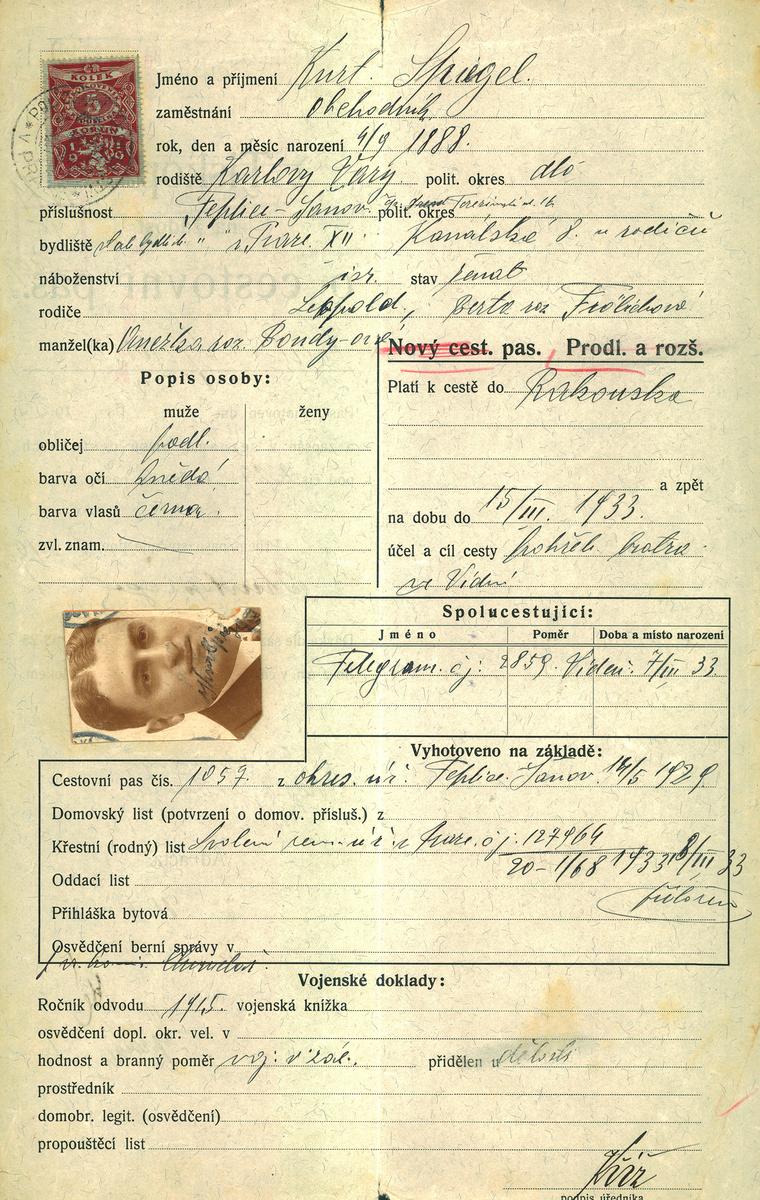 KOLEK
5
KORUN
Jméno a příjmení Kurt Spiegel.
zaměstnání obchodník
rok, den a měsíc narození 4/9 1888.
rodiště Karlovy Vary polit. okres dto
příslušnost Teplice-Šanov polit. okres
bydliště v Praze XII Kanálská 8. u rodičů
náboženství isr. stav ženat
rodiče Leopold, Berta roz. Frölichová
manžel(ka) Anežka roz. Bondy-ová
Nový cest. pas. Prodl. a rozš.
Popis osoby:
Platí k cestě do Rakouska
muže ženy
obličej podl.
barva očí hnědá
a zpět
barva vlasů černá
na dobu do 15/III. 1933.
zvl. znam.
účel a cíl cesty pohřeb bratra
ve Vídni
Spolucestující:
Jméno Poměr Doba a místo narození
Telegram čj: 2859 Vídeň 7/III 33.
Vyhotoveno na základě:
Cestovní pas čís. 1057. z okres. úř. Teplice Šanov 14/5 1929.
Domovský list (potvrzení o domov. přísluš.) z
Křestní (rodný) list čj. 127464
20-1/68 1933 8/III 33
Oddací list
Přihláška bytová
Osvědčení berní správy v
Vojenské doklady:
Ročník odvodu 1915. vojenská knížka
osvědčení dopl. okr. vel. v
hodnost a branný poměr voj. v zál. přidělen u
prostředník
domobr. legit. (osvědčení)
propouštěcí list
Kříž
podpis úředníka